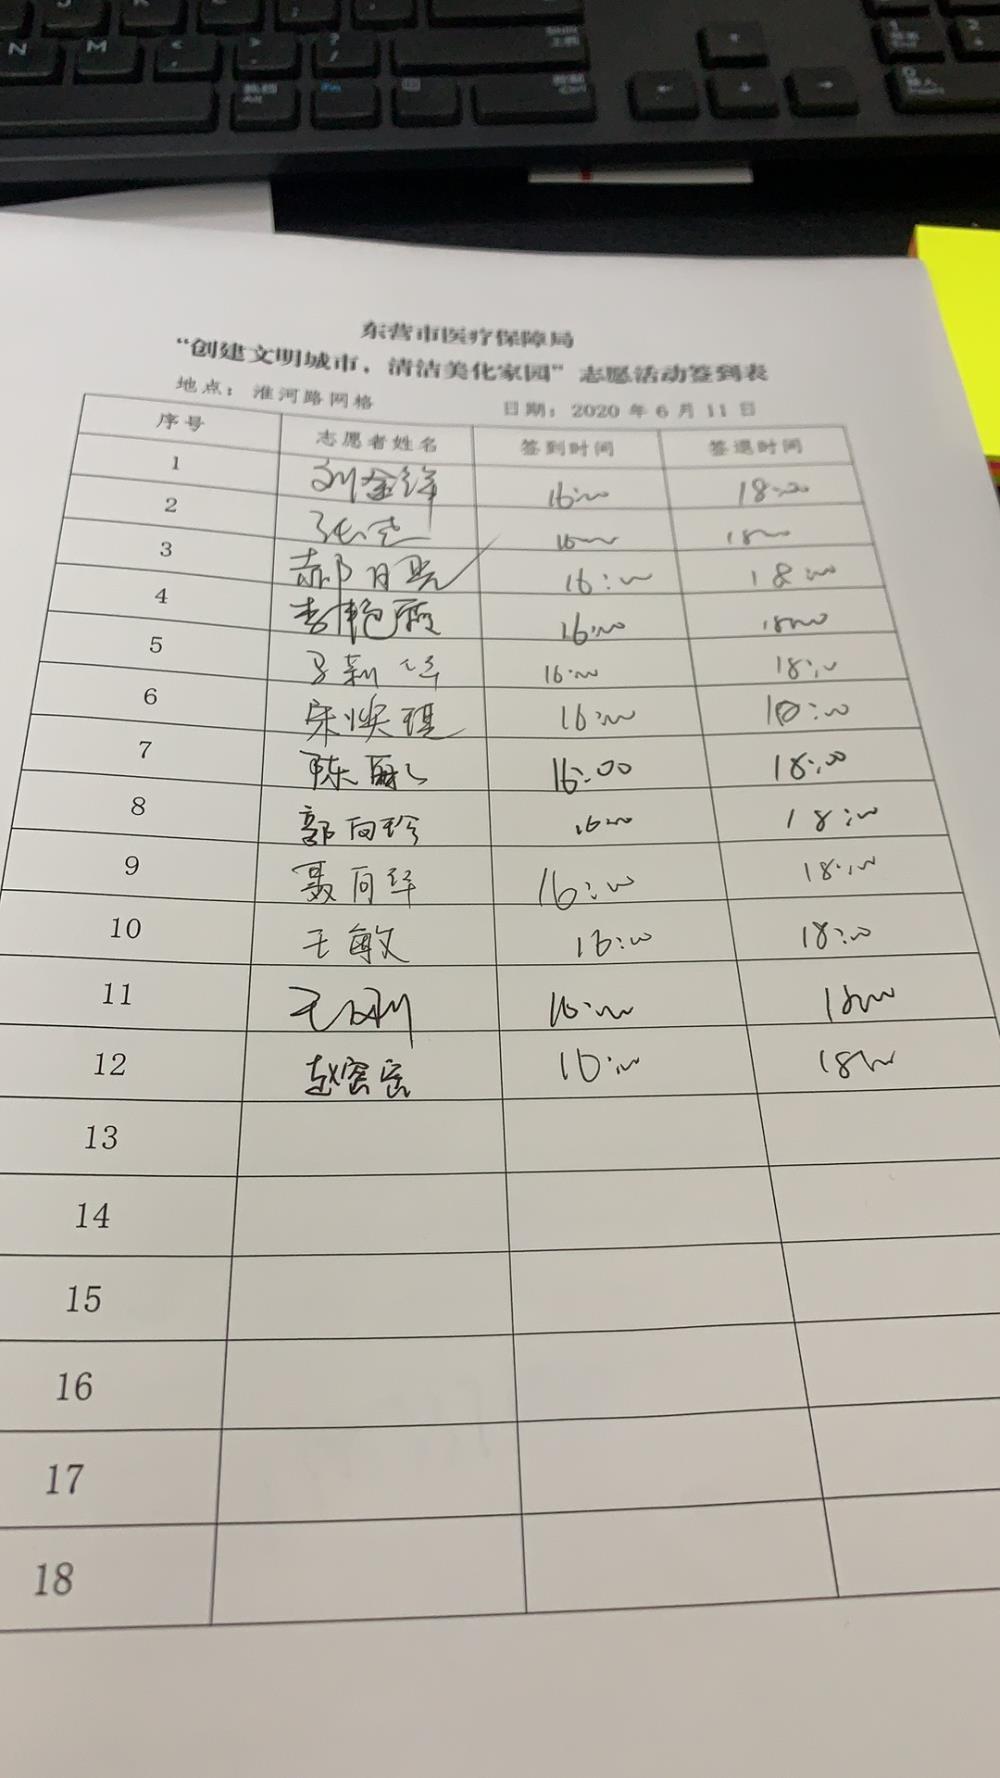 东营市医疗保障局
“创建文明城市，清洁美化家园”志愿活动签到表
地点：淮河路网格 日期：2020 年 6 月 11 日
序号 志愿者姓名 签到时间 签退时间
1 刘金锋 16:00 18:00
2 16:00 18:00
3 郝月 16:00 18:00
4 李艳霞 16:00 18:00
5 16:00 18:00
6 宋焕 16:00 18:00
7 陈丽 16:00 18:00
8 郭向珍 16:00 18:00
9 聂向华 16:00 18:00
10 王敏 16:00 18:00
11 王刚 16:00 18:00
12 赵密密 16:00 18:00
13
14
15
16
17
18